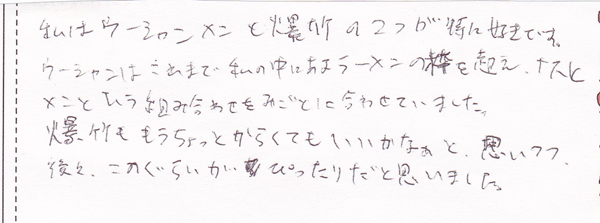 私はウーシャンメンと爆竹の2つが特に好きです。
ウーシャンはこれまで私の中にあるラーメンの枠を超え、ナスと
メンという組み合わせをみごとに合わせていました。
爆竹ももうちょっとからくてもいいかなぁと、思いつつ、
後々、このぐらいが ぴったりだと思いました。